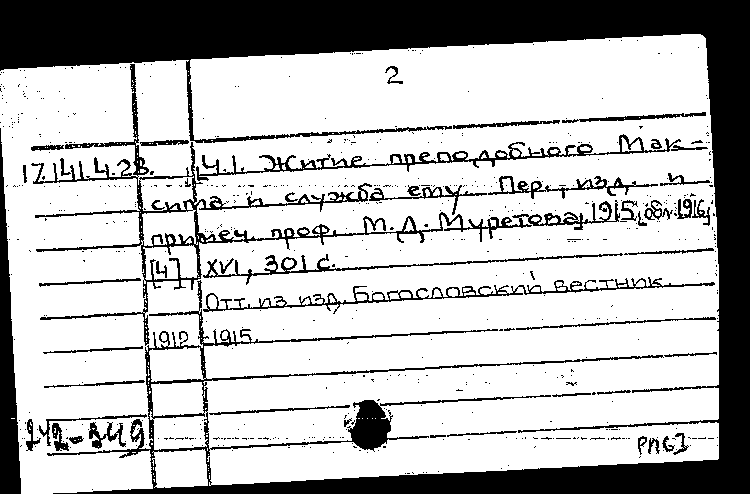 2
17.141.4.23. [Ч.1. Житие преподобного Мак-
сима и служба ему. Пер., изд. и
примеч. проф. М.Д. Муретова]. 1915 [обл. 1916].
[4], XVI, 301 с.
Отт. из изд. Богословский вестник.
1912-1915.
242-349
РПБЗ